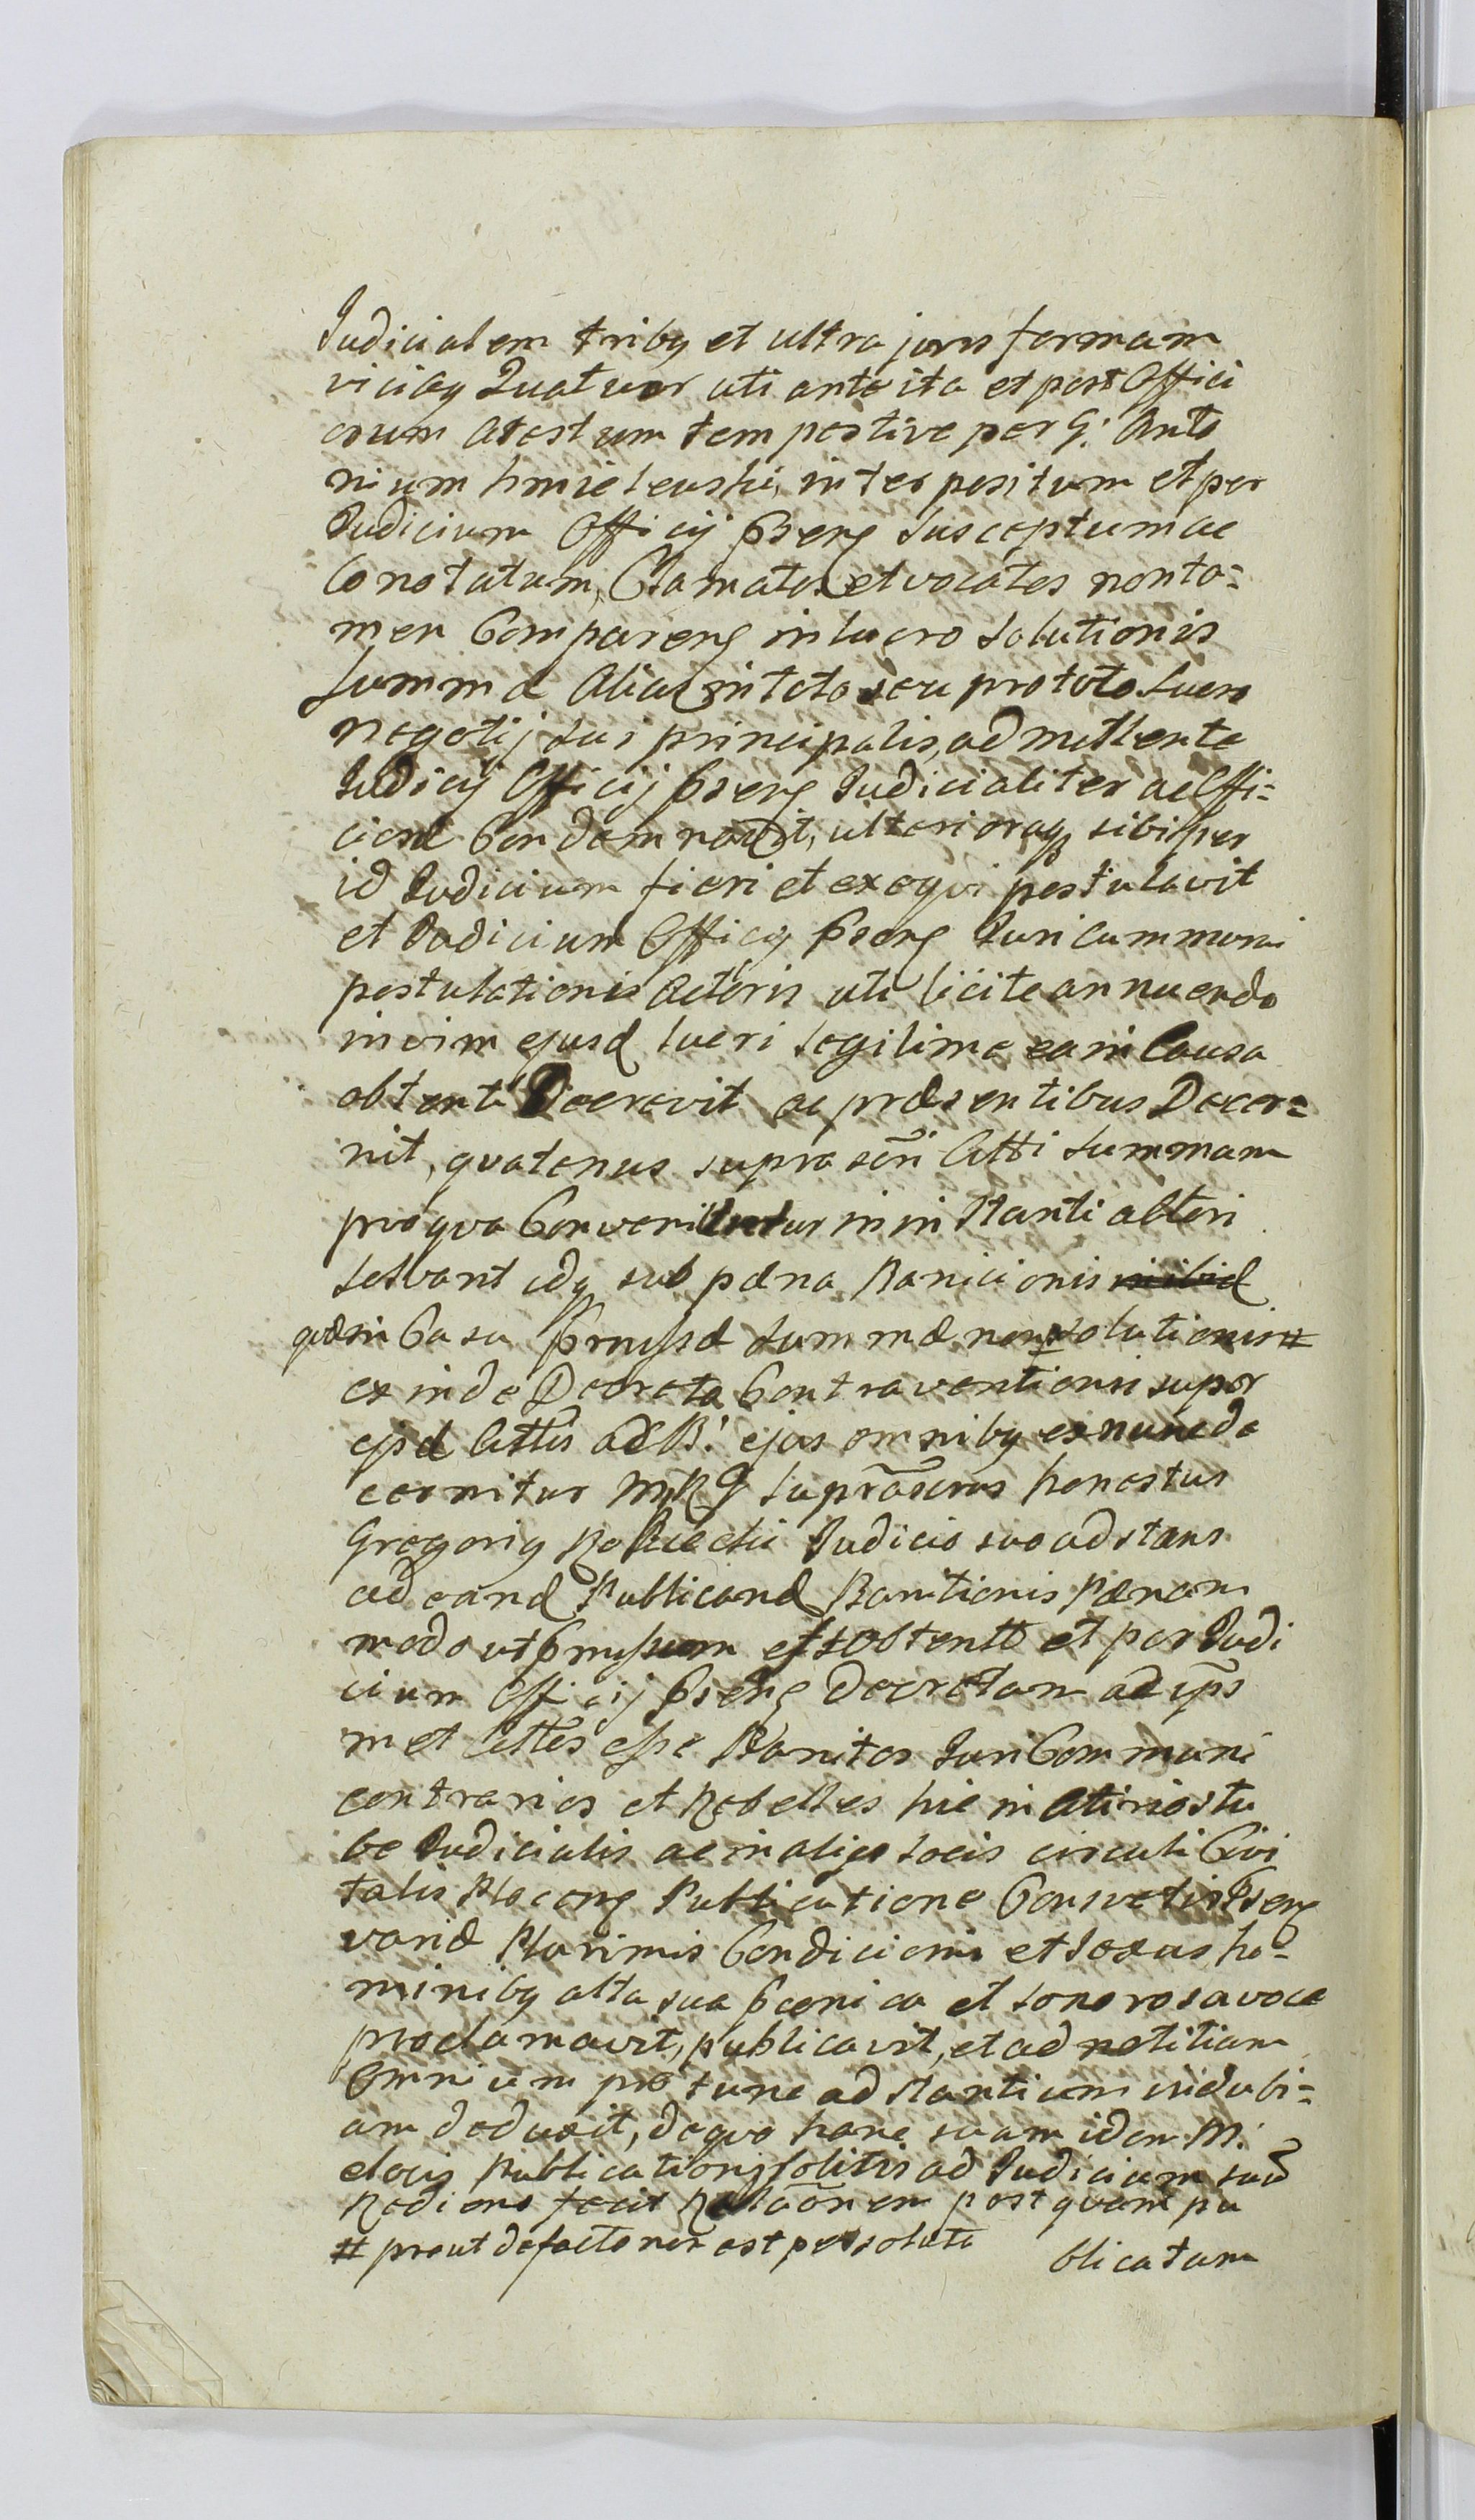 Judicialem tribq et ultra juris formam
vicibq Quatuor uti ante ita et post Offici
osum Atestum tempestive per G: Anto
nium hmielewski, interpositum et per
Judicium Officij Pserg susceptum ac
Conotatum, Clamatos et vocatos non ta=
men Comparerg in lucro solutionis
summæ Alias in toto seu pro toto lucro
negotij sui principalis, admittente
Judicij Officij Pserg Judicialiter ac Offi=
ciose Condemnavit, ulterioraq sibi per
id Judicium fieri et exeqvi postulavit
et Judicium Officij Pserg Juri Cummuni
postulationis Actoris uti licite annuendo
in vim ejusd lucri legitime ea in Causa
obtenti Decrevit ac præsentibus Decer=
nit, qvatenus suprascri Citti summam
pro qva Conveniuntur in instanti Actori
solvant idq sub pæna Banicionis
qvæ in Casu Pmissæ summæ non solutionis #
ex inde Decreta Contraventionis super
ejsd Cittis ad B: ejus omnibq ex nunc de
cernitur M R G suprascrus honestus
Gregorig Judicio suo adstans
ad eand Publicand Banitionis Pænam
modo ut Pmissum est Obtentt et per Judi
cium Officij Pserg Decretam ad ips
met Cittes esse Banitos Juri Communi
contrarios et Rebelles hic in Atirio stu
be Judicialis ac in aliqs Locis circuli Civi
talis Plocerg Publicatione Consvetis Pserg
varid Plurimis Condicionis et Sexus ho=
minibq alta sua Pconica et sonorosa voce
proclamavit, publicavit, et ad notitiam
Omnium pro tunc adstantium indubi=
am deduxit, de qvo hanc suam idem M:
e locis Publicationis solitis ad Judicium suu
Rediens fecit Relaonem post quam pu
# prout de facto non est persoluta blicatam